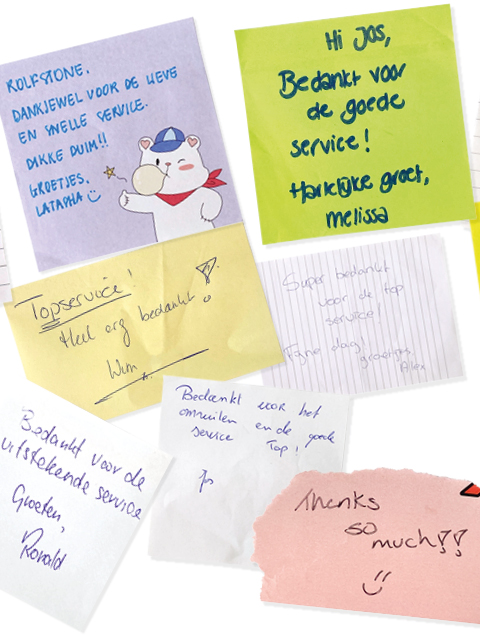 ROLFSTONE,
DANKJEWEL VOOR DE LIEVE
EN SNELLE SERVICE.
DIKKE DUIM!!
GROETJES,
LATAPHA
Hi Jos,
Bedankt voor
de goede
service!
Hartelijke groet,
melissa
Topservice!
Heel erg bedankt!
Wim
Super bedankt
voor de top
service!
Fijne dag!
groetjes
Alex
Bedankt voor de
uitstekende service
Groeten,
Ronald
Bedankt voor het
omruilen en de goede
service Top!
Thanks
so
much!!